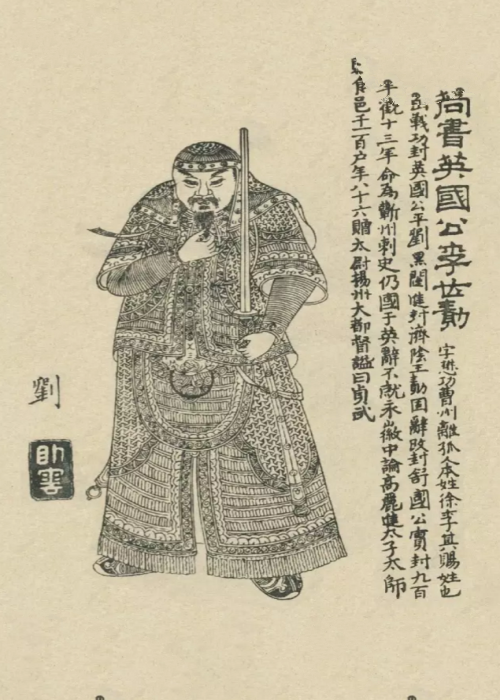 尚書英國公李世勣 字懋功曹州離狐人本姓徐李其賜姓也
㠯戰功封英國公平劉黑闥進封濟陰王勣固辭改封舒國公實封九百
觀十三年命為蘄州刺史仍國于英辭不就永徽中論高麗進太子太師
食邑千一百户年八十六贈太尉揚州大都督謚曰貞武
劉